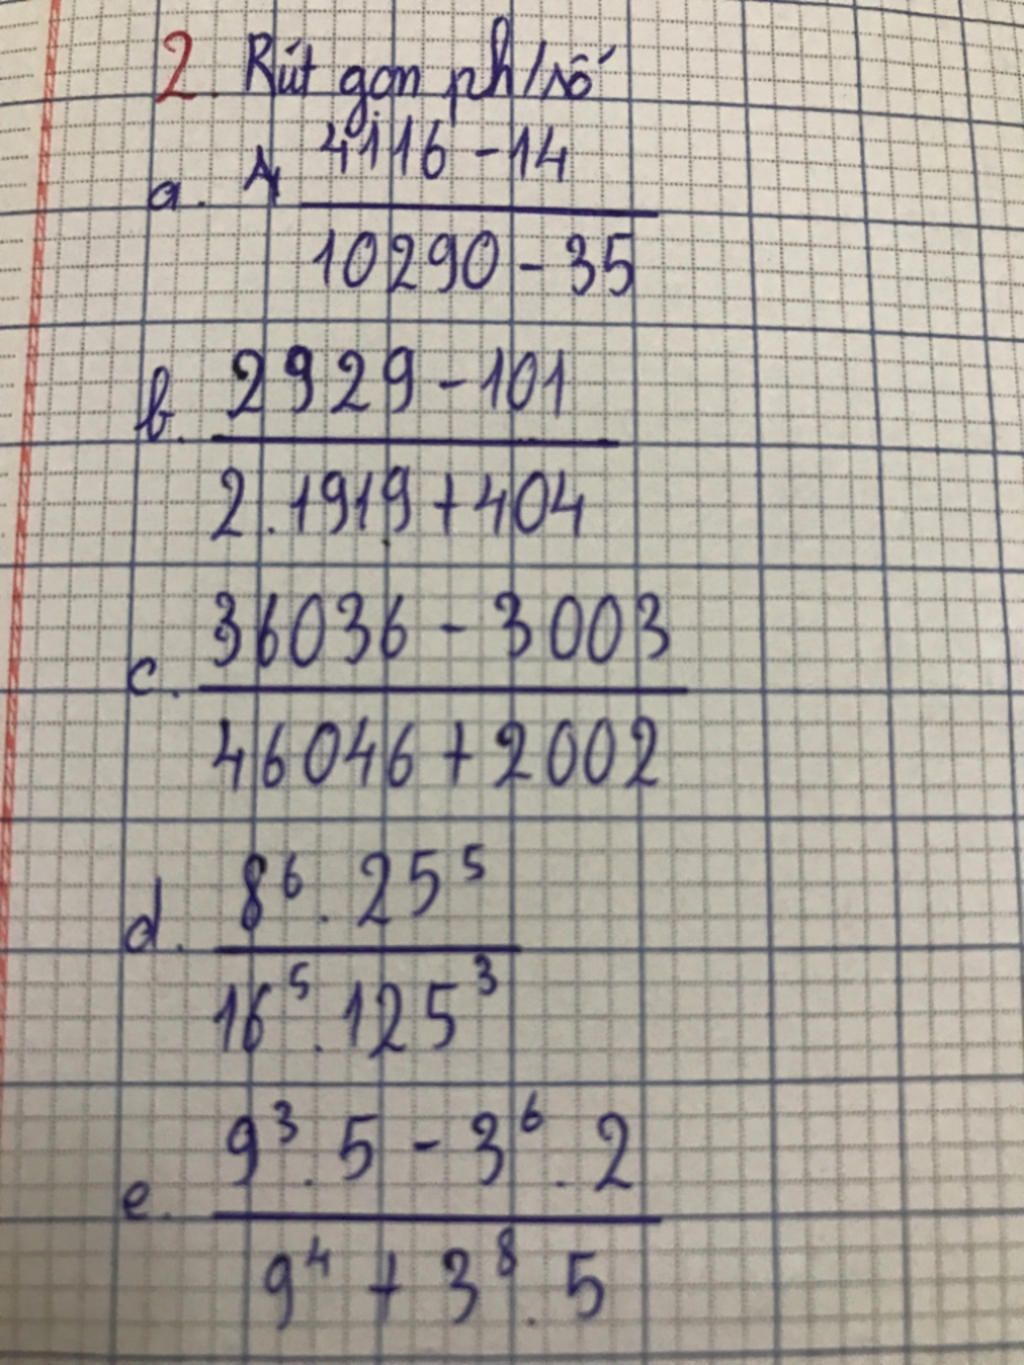 2. Rút gọn ph/số
a. A 4116 - 14
10290 - 35
b. 2929 - 101
2.1919 + 404
c. 36036 - 3003
46046 + 2002
d. 8⁶ . 25⁵
16⁵ . 125³
e. 9³ . 5 - 3⁶ . 2
9⁴ + 3⁸ . 5